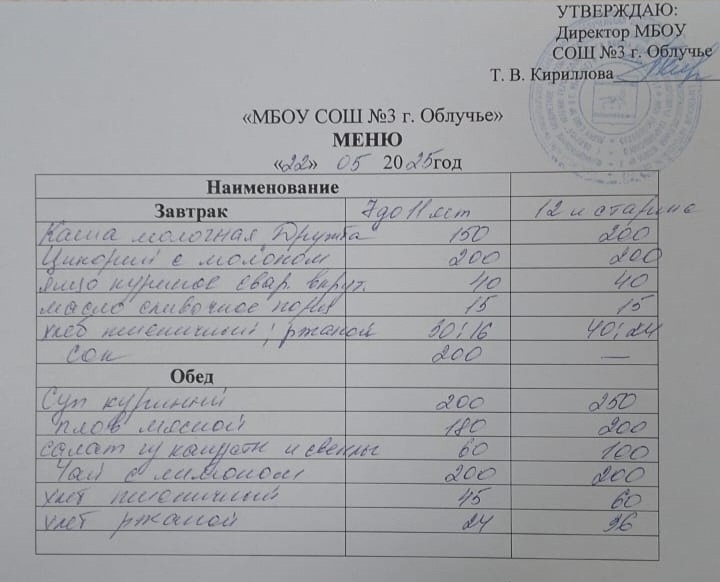 УТВЕРЖДАЮ:
Директор МБОУ
СОШ №3 г. Облучье
Т. В. Кириллова
«МБОУ СОШ №3 г. Облучье»
МЕНЮ
«22» 05 2025год
Наименование
Завтрак 7 до 11 лет 12 и старше
Каша молочная Дружба 150 200
Цикорий с молоком 200 200
яйцо куриное свар. вкрут. 40 40
масло сливочное порц 15 15
хлеб пшеничный; ржаной 30; 16 40; 24
сок 200 —
Обед
Суп куриный 200 250
плов мясной 180 200
салат из капусты и свеклы 60 100
Чай с лимоном 200 200
хлеб пшеничный 45 60
хлеб ржаной 24 36